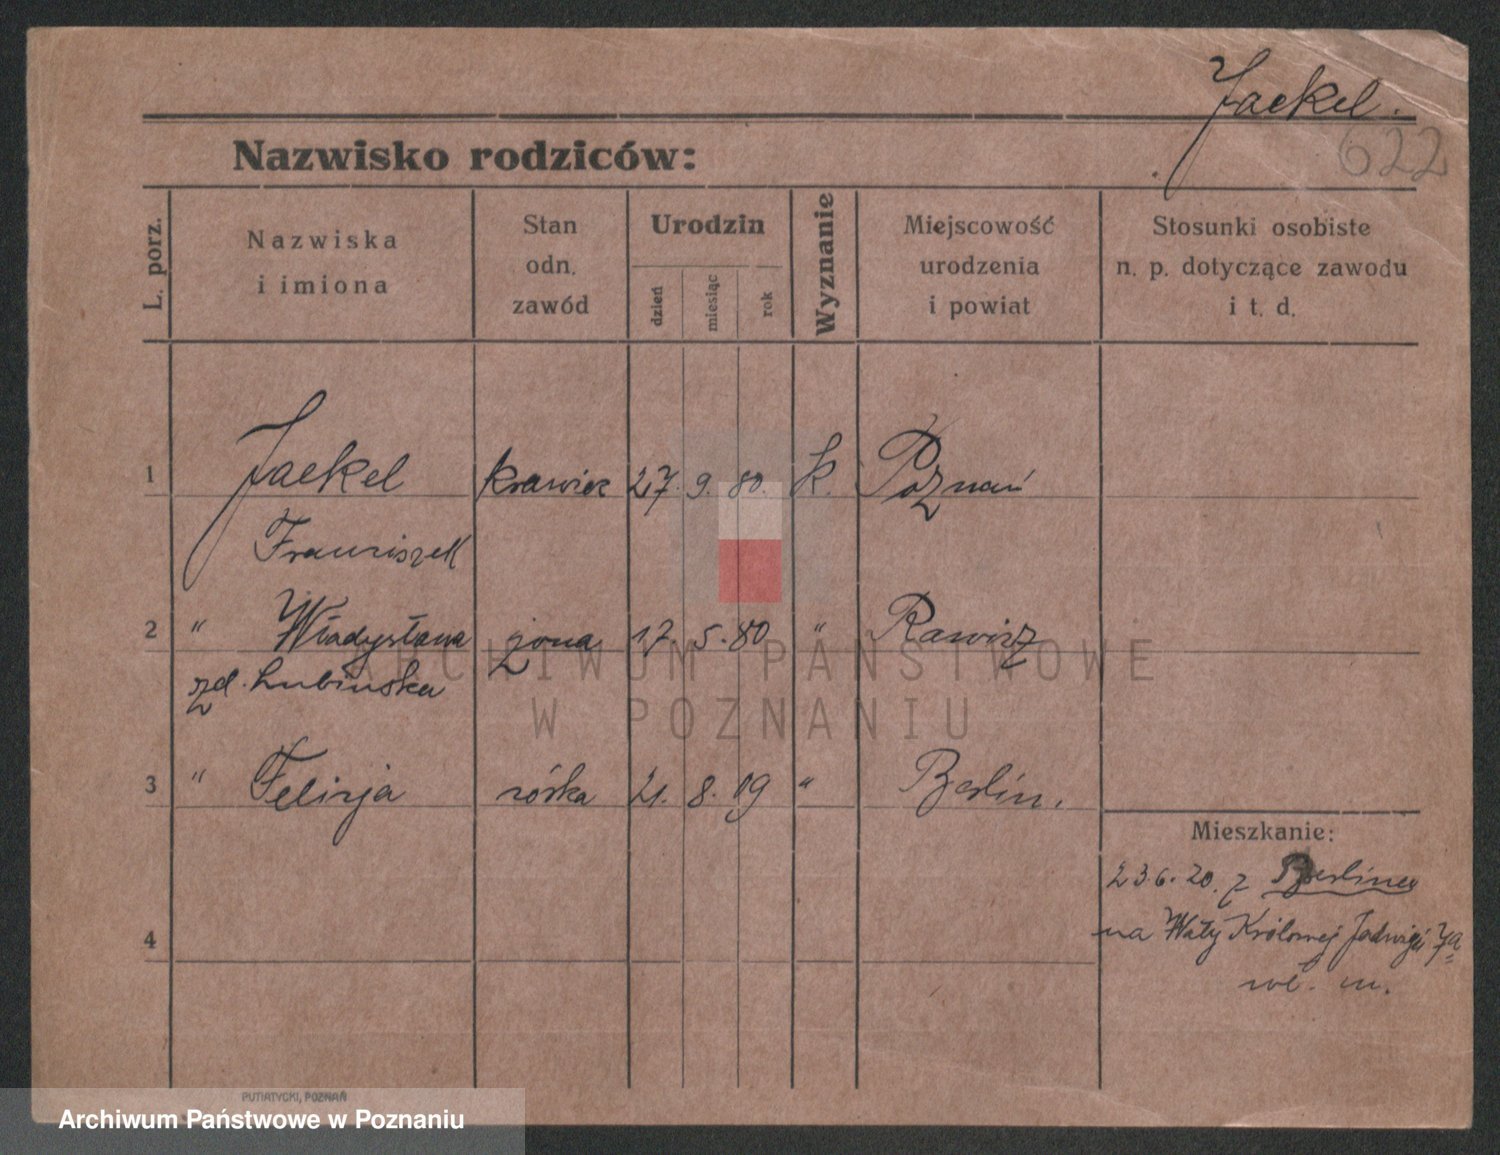 Jaekel.
622
Nazwisko rodziców:
L. porz.
Nazwiska
i imiona
Stan
odn.
zawód
Urodzin
dzień
miesiąc
rok
Wyznanie
Miejscowość
urodzenia
i powiat
Stosunki osobiste
n. p. dotyczące zawodu
i t. d.
1 Jaekel krawiec 27. 9. 80. k. Poznań
Franciszek
2 " Władysława żona 17. 5. 80 " Rawicz
zd. Lubińska
3 " Felicja córka 21. 8. 19 " Berlin.
Mieszkanie:
23 6. 20. z Berlina
na Wały Królowej Jadwigi 7a
wł. m.
4
ARCHIWUM PAŃSTWOWE
W POZNANIU
PUTIATYCKI, POZNAŃ
Archiwum Państwowe w Poznaniu